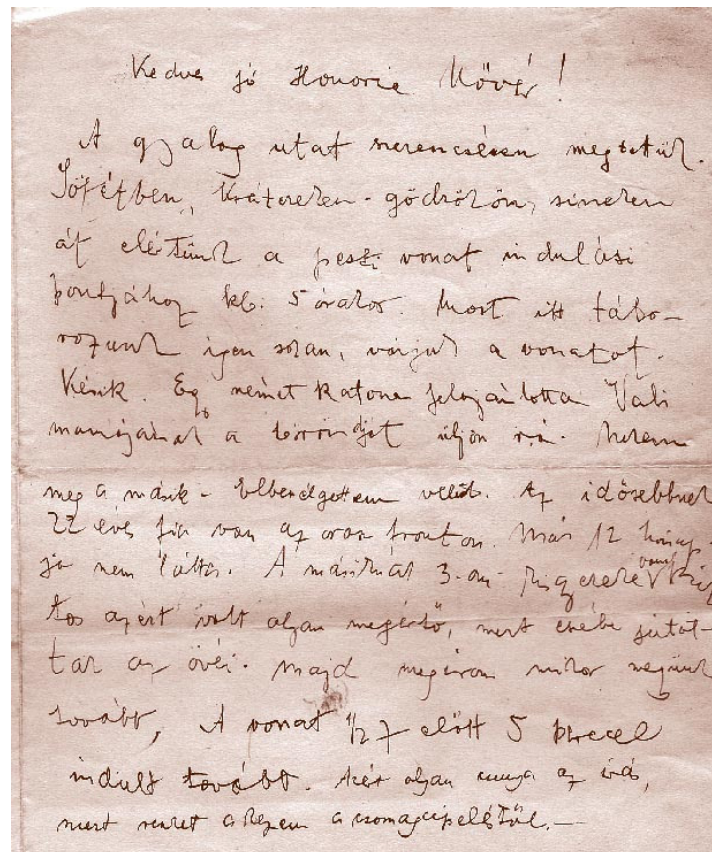 Kedves jó Honorie Kövér!
A gyalog utat szerencsésen megtettük.
Sötétben, krátereken - gödrökön, sineken
át elértünk a pesti vonat indulási
pontjához kb. 5 órakor. Most itt tábo-
rozunk igen sokan, várjuk a vonatot.
Késik. Egy német katona felajánlotta Vali
mamájának a bőröndjét üljön rá. Nekem
meg a másik - Elbeszélgettem velük. Az idősebbnek
22 éves fia van az orosz fronton. Már 12 hónap-
ja nem látta. A másiknak 3. om
tos azért volt olyan megértő, mert eszébe jutot-
tak az övéi. Majd megírom mikor megyünk
tovább, A vonat 1/2 7 előtt 5 perccel
indult tovább. Azért olyan csunya az írás,
mert reszket a kezem a csomagcipeléstől. —